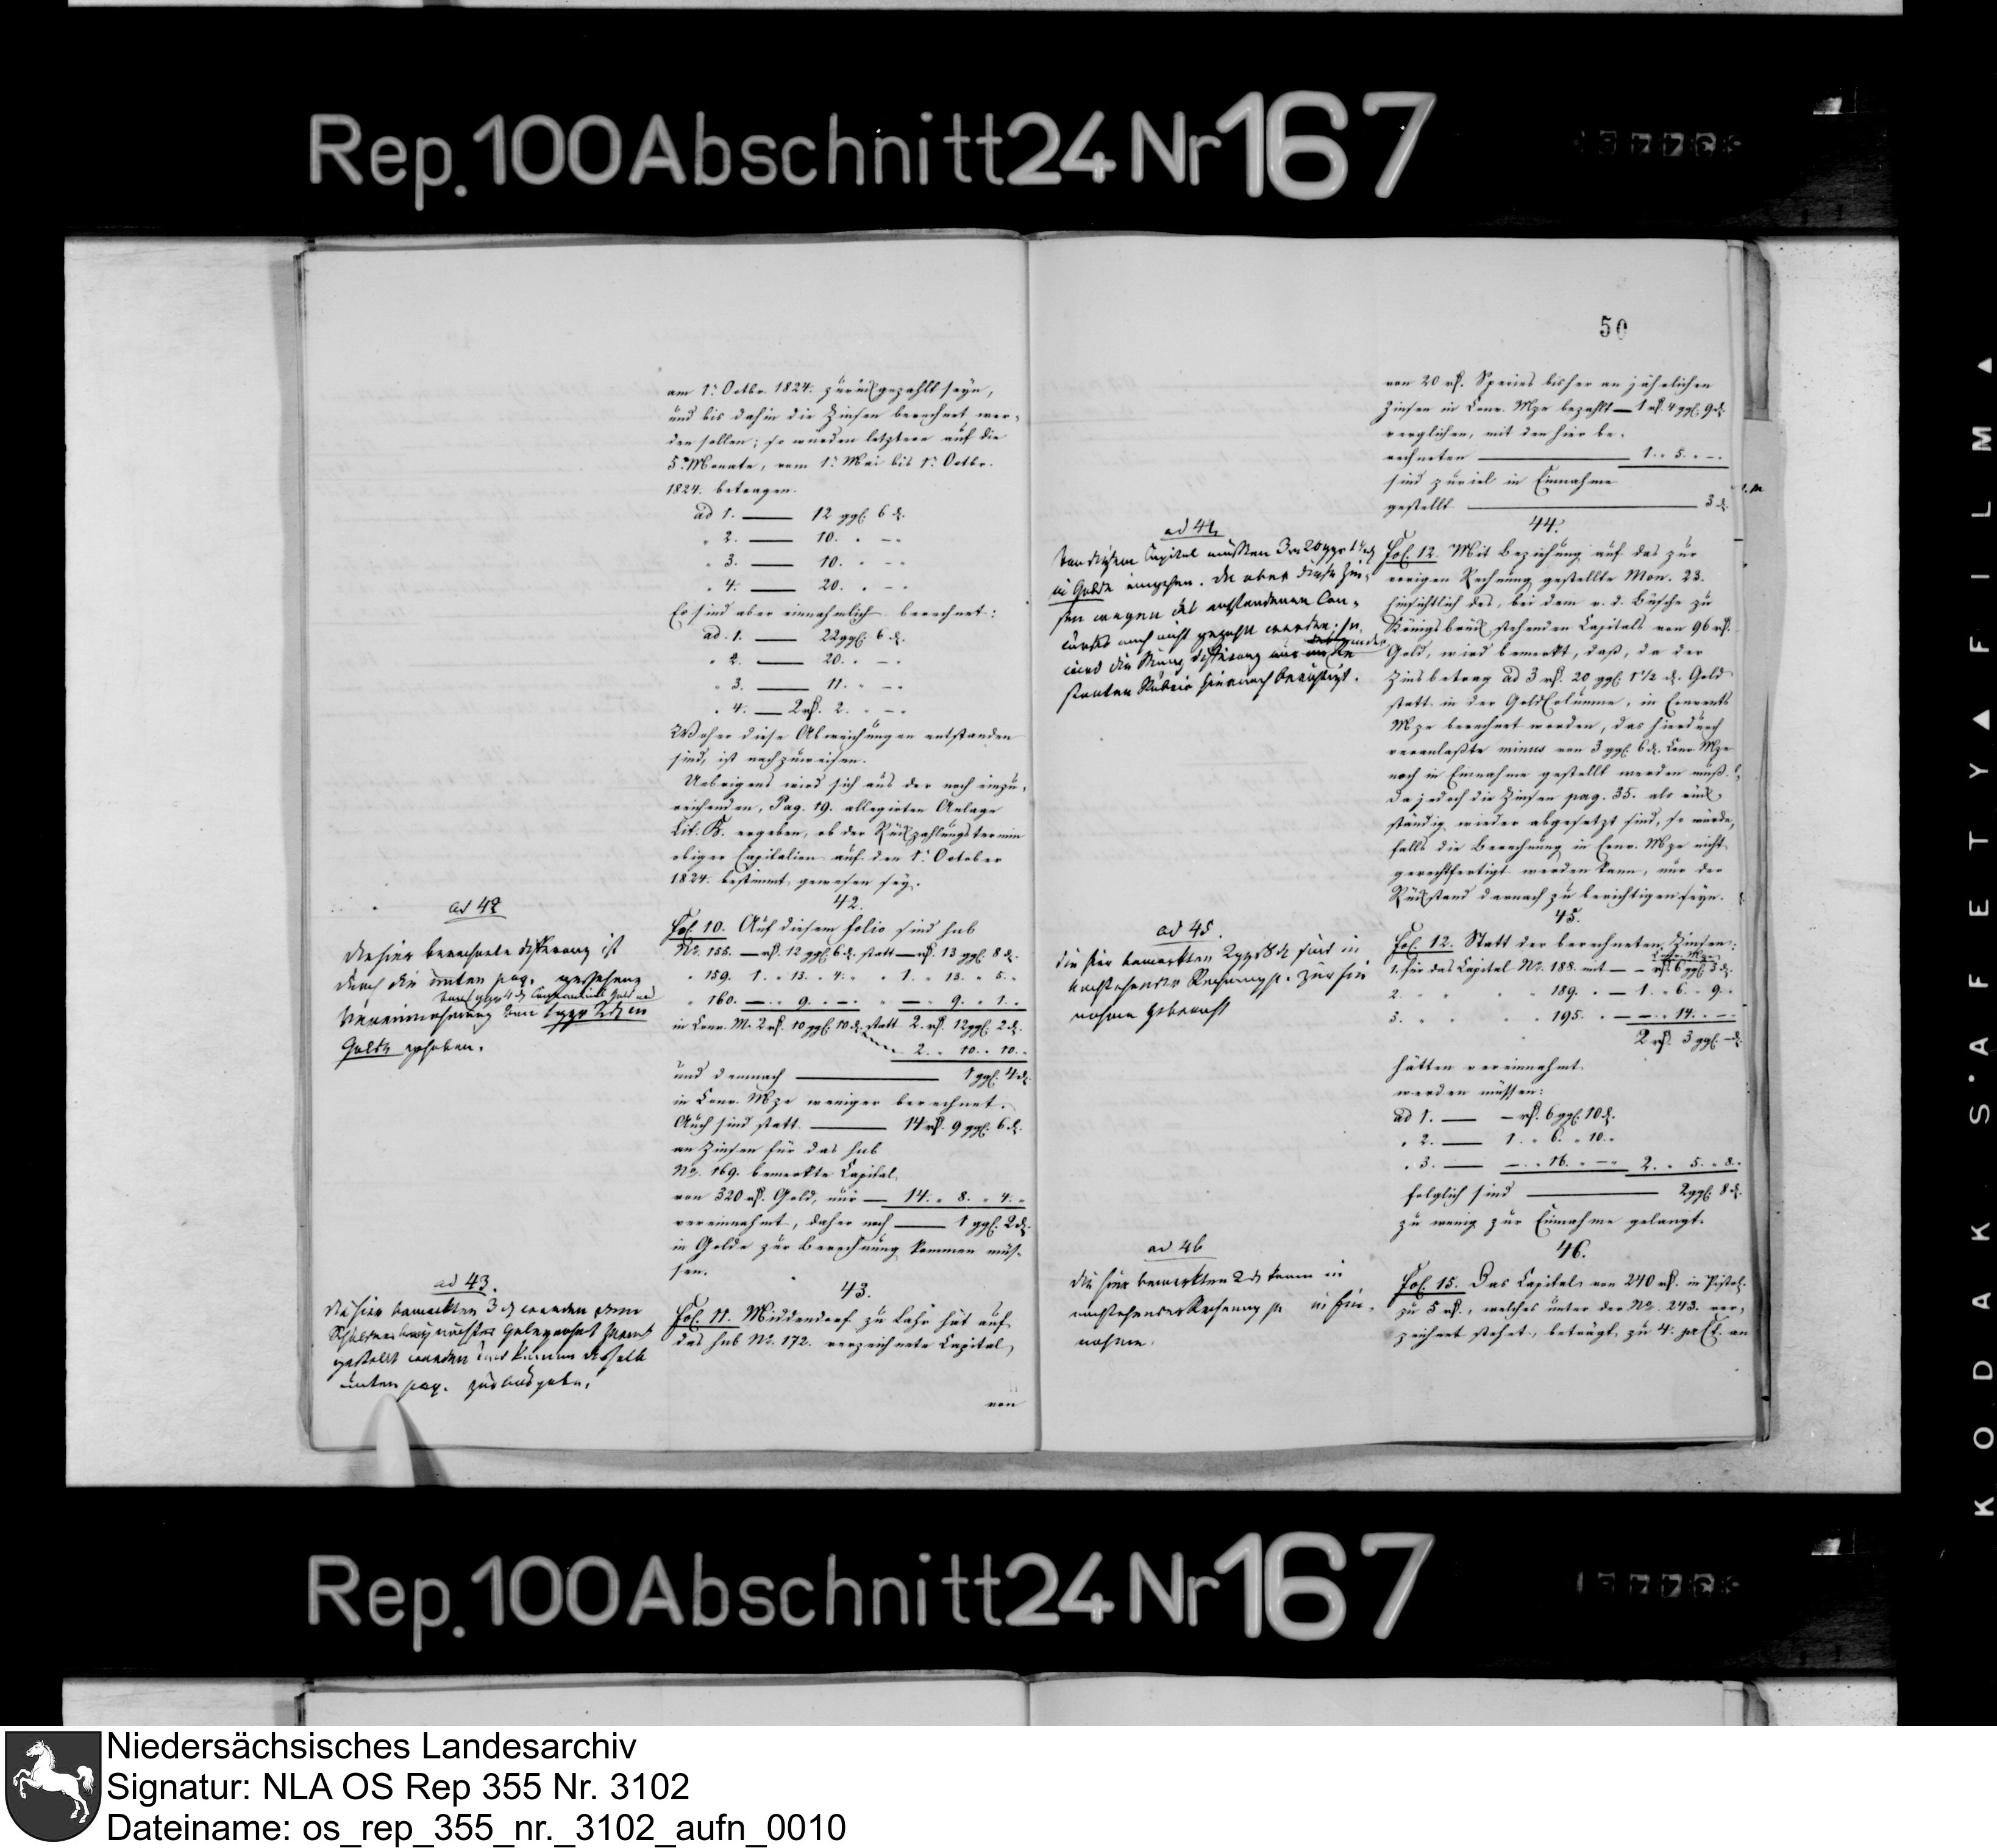 Rep. 100 Abschnitt 24 Nr 167
am 1t Octbr. 1824. zurückgezahlt seyn,
und bis dahin die Zinsen berechnet wer-
den sollen; so würden letztere auf die
5. Monate, vom 1t Mai bis 1t Octbr.
1824. betragen.
ad 1. — 12 ggl. 6 d.
" 2. — 10. " —"
" 3. — 10. " —"
" 4. — 20. " —"
Es sind aber einnahmlich berechnet:
ad. 1. — 22 ggl. 6 d.
" 2. — 20. " —"
" 3. — 11. " —"
" 4. — 2 rß. 2. " —"
Woher diese Abweichungen entstanden
sind, ist nachzuweisen.
Uebrigens wird sich aus der noch einzu-
reichenden, Pag. 19. allegirten Anlage
Lit. K. ergeben, ob der Rückzahlungstermin
obiger Capitalien auf den 1t October
1824. bestimmt gewesen sey.
ad 42
die hier berechnete Differenz ist
durch die unten pag. geschehene
Vereinnahmung von 1 ggr 2 d in
Golde gehoben.
42.
Fol. 10. Auf diesem folio sind sub
No. 158. — rß. 12 ggl. 6 d. statt — rß. 13 ggl. 8 d.
" 159. 1. " 13. " 4. " " 1. " 13. " 5. "
" 160. — " 9. " — " " — " 9. " 1. "
in Conv. M. 2 rß. 10 ggl. 10 d. statt 2. rß. 12 ggl. 2 d.
2. " 10. " 10. "
und demnach — 1 ggl. 4 d.
in Conv. Mze weniger berechnet.
Auch sind statt — 14 rß. 9 ggl. 6 d.
an Zinsen für das sub
No. 169. bemerkte Capital
von 320 rß. Gold, nur — 14. " 8. " 4. "
vereinnahmt, daher noch — 1 ggl. 2 d.
in Golde zur Berechnung kommen müs-
sen.
ad 43.
die hier bemerkten 3 d werden dem
Schuldner bey nächster Gelegenheit zurück
gestellt werden und kommen deshalb
unten pag. zur Ausgabe.
43.
Fol. 11. Middendorf zu Lahr hat auf
das sub No. 172. verzeichnete Capital,
von
50
von 20 rß. Species bisher an jährlichen
Zinsen in Conv. Mze bezahlt — 1 rß. 4 ggl. 9 d.
verglichen, mit den hier be-
rechneten — 1. " 5. " —"
sind zuviel in Einnahme
gestellt — 3 d.
ad 44
Von diesem Capital müssten 3 rt 20 ggr 1½ d
in Golde eingehen. Da aber diese Zin-
sen wegen des entstandenen Con-
curses noch nicht gezahlt werden, so
44.
Fol. 12. Mit Beziehung auf das zur
vorigen Rechnung gestellte Mon. 23.
hinsichtlich des, bei dem v. d. Büsche zu
Königsbrück stehenden Capitals von 96 rß.
Gold, wird bemerkt, daß, da der
Zinsbetrag ad 3 rß. 20 ggl. 1 1/2 d. Gold
statt in der GoldColumne, in Convents
Mze berechnet worden, das hierdurch
veranlaßte minus von 3 ggl. 6 d. Conv Mze
noch in Einnahme gestellt werden muß.
Da jedoch die Zinsen pag. 35. als rück-
ständig wieder abgesetzt sind, so würde,
falls die Berechnung in Conv. Mze nicht
gerechtfertigt werden kann, nur der
Rückstand darnach zu berichtigen seyn.
ad 45.
die hier bemerkten 2 ggr 8 d sind in
nachstehender Rechnung p. zur Ein
nahme gebracht
45.
Fol. 12. Statt der berechneten Zinsen:
Conv. Mze
1. für das Capital No. 188. mit — — rß. 6 ggl. 3 d.
2. " " " 189. " — 1. " 6. " 9. "
3. " " " 195. " — — " 14. " — "
2 rß. 3 ggl. — d.
hätten vereinnahmt
werden müssen:
ad 1. — — rß. 6 ggl. 10 d.
" 2. — 1. " 6. " 10. "
" 3. — — " 16. " — " 2. " 5. " 8. "
folglich sind — 2 ggl. 8 d.
zu wenig zur Einnahme gelangt.
ad 46
die hier bemerkten 2 d kommen in
nachstehender Rechnung p. in Ein-
nahme.
46.
Fol. 15. Das Capital von 240 rß. in Pistol.
zu 5 rß., welches unter der No. 243. ver-
zeichnet stehet, beträgt zu 4. pr Ct. an
KODAK S·AFETY▲FILM▲
Rep. 100 Abschnitt 24 Nr 167
Niedersächsisches Landesarchiv
Signatur: NLA OS Rep 355 Nr. 3102
Dateiname: os_rep_355_nr._3102_aufn_0010